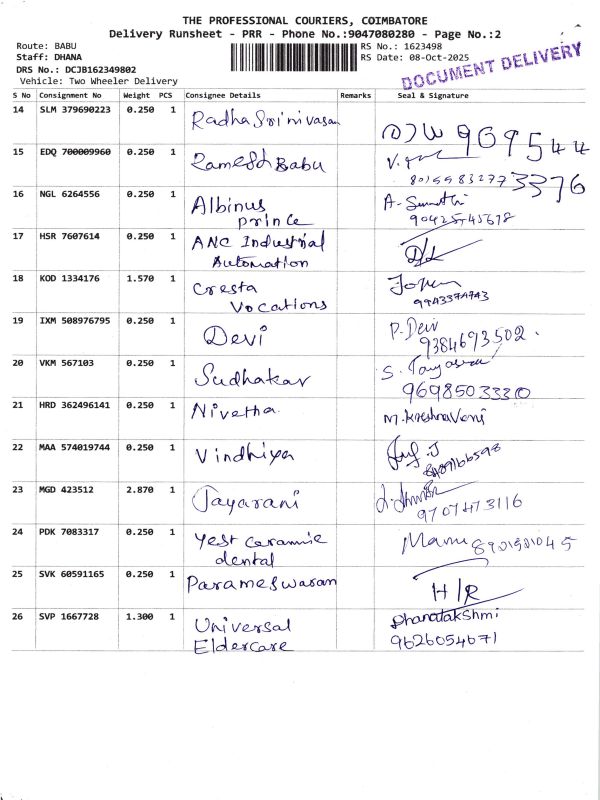 THE PROFESSIONAL COURIERS, COIMBATORE
Delivery Runsheet - PRR - Phone No.:9047080280 - Page No.:2
Route: BABU RS No.: 1623498
Staff: DHANA RS Date: 08-Oct-2025
DRS No.: DCJB162349802
Vehicle: Two Wheeler Delivery
DOCUMENT DELIVERY
S No Consignment No Weight PCS Consignee Details Remarks Seal & Signature
14 SLM 379690223 0.250 1 Radha Srinivasan
15 EDQ 700009960 0.250 1 Ramesh Babu
8015983277
3376
16 NGL 6264556 0.250 1 Albinus A- Sumathi
prince 90425745678
17 HSR 7607614 0.250 1 ANC Industrial
Automation
18 KOD 1334176 1.570 1 Cresta
Vocations 9943374743
19 IXM 508976795 0.250 1 Devi P. Devi
9384693502.
20 VKM 567103 0.250 1 Sudhakar
9698503330
21 HRD 362496141 0.250 1 Nivetha M. KrishnaVeni
22 MAA 574019744 0.250 1 Vindhiya
23 MGD 423512 2.870 1 Jayarani
9707473116
24 PDK 7083317 0.250 1 Yest Ceramic
dental
25 SVK 60591165 0.250 1 Parameswaran
H/R
26 SVP 1667728 1.300 1 Universal Dhanalakshmi
Eldercare 9626054671